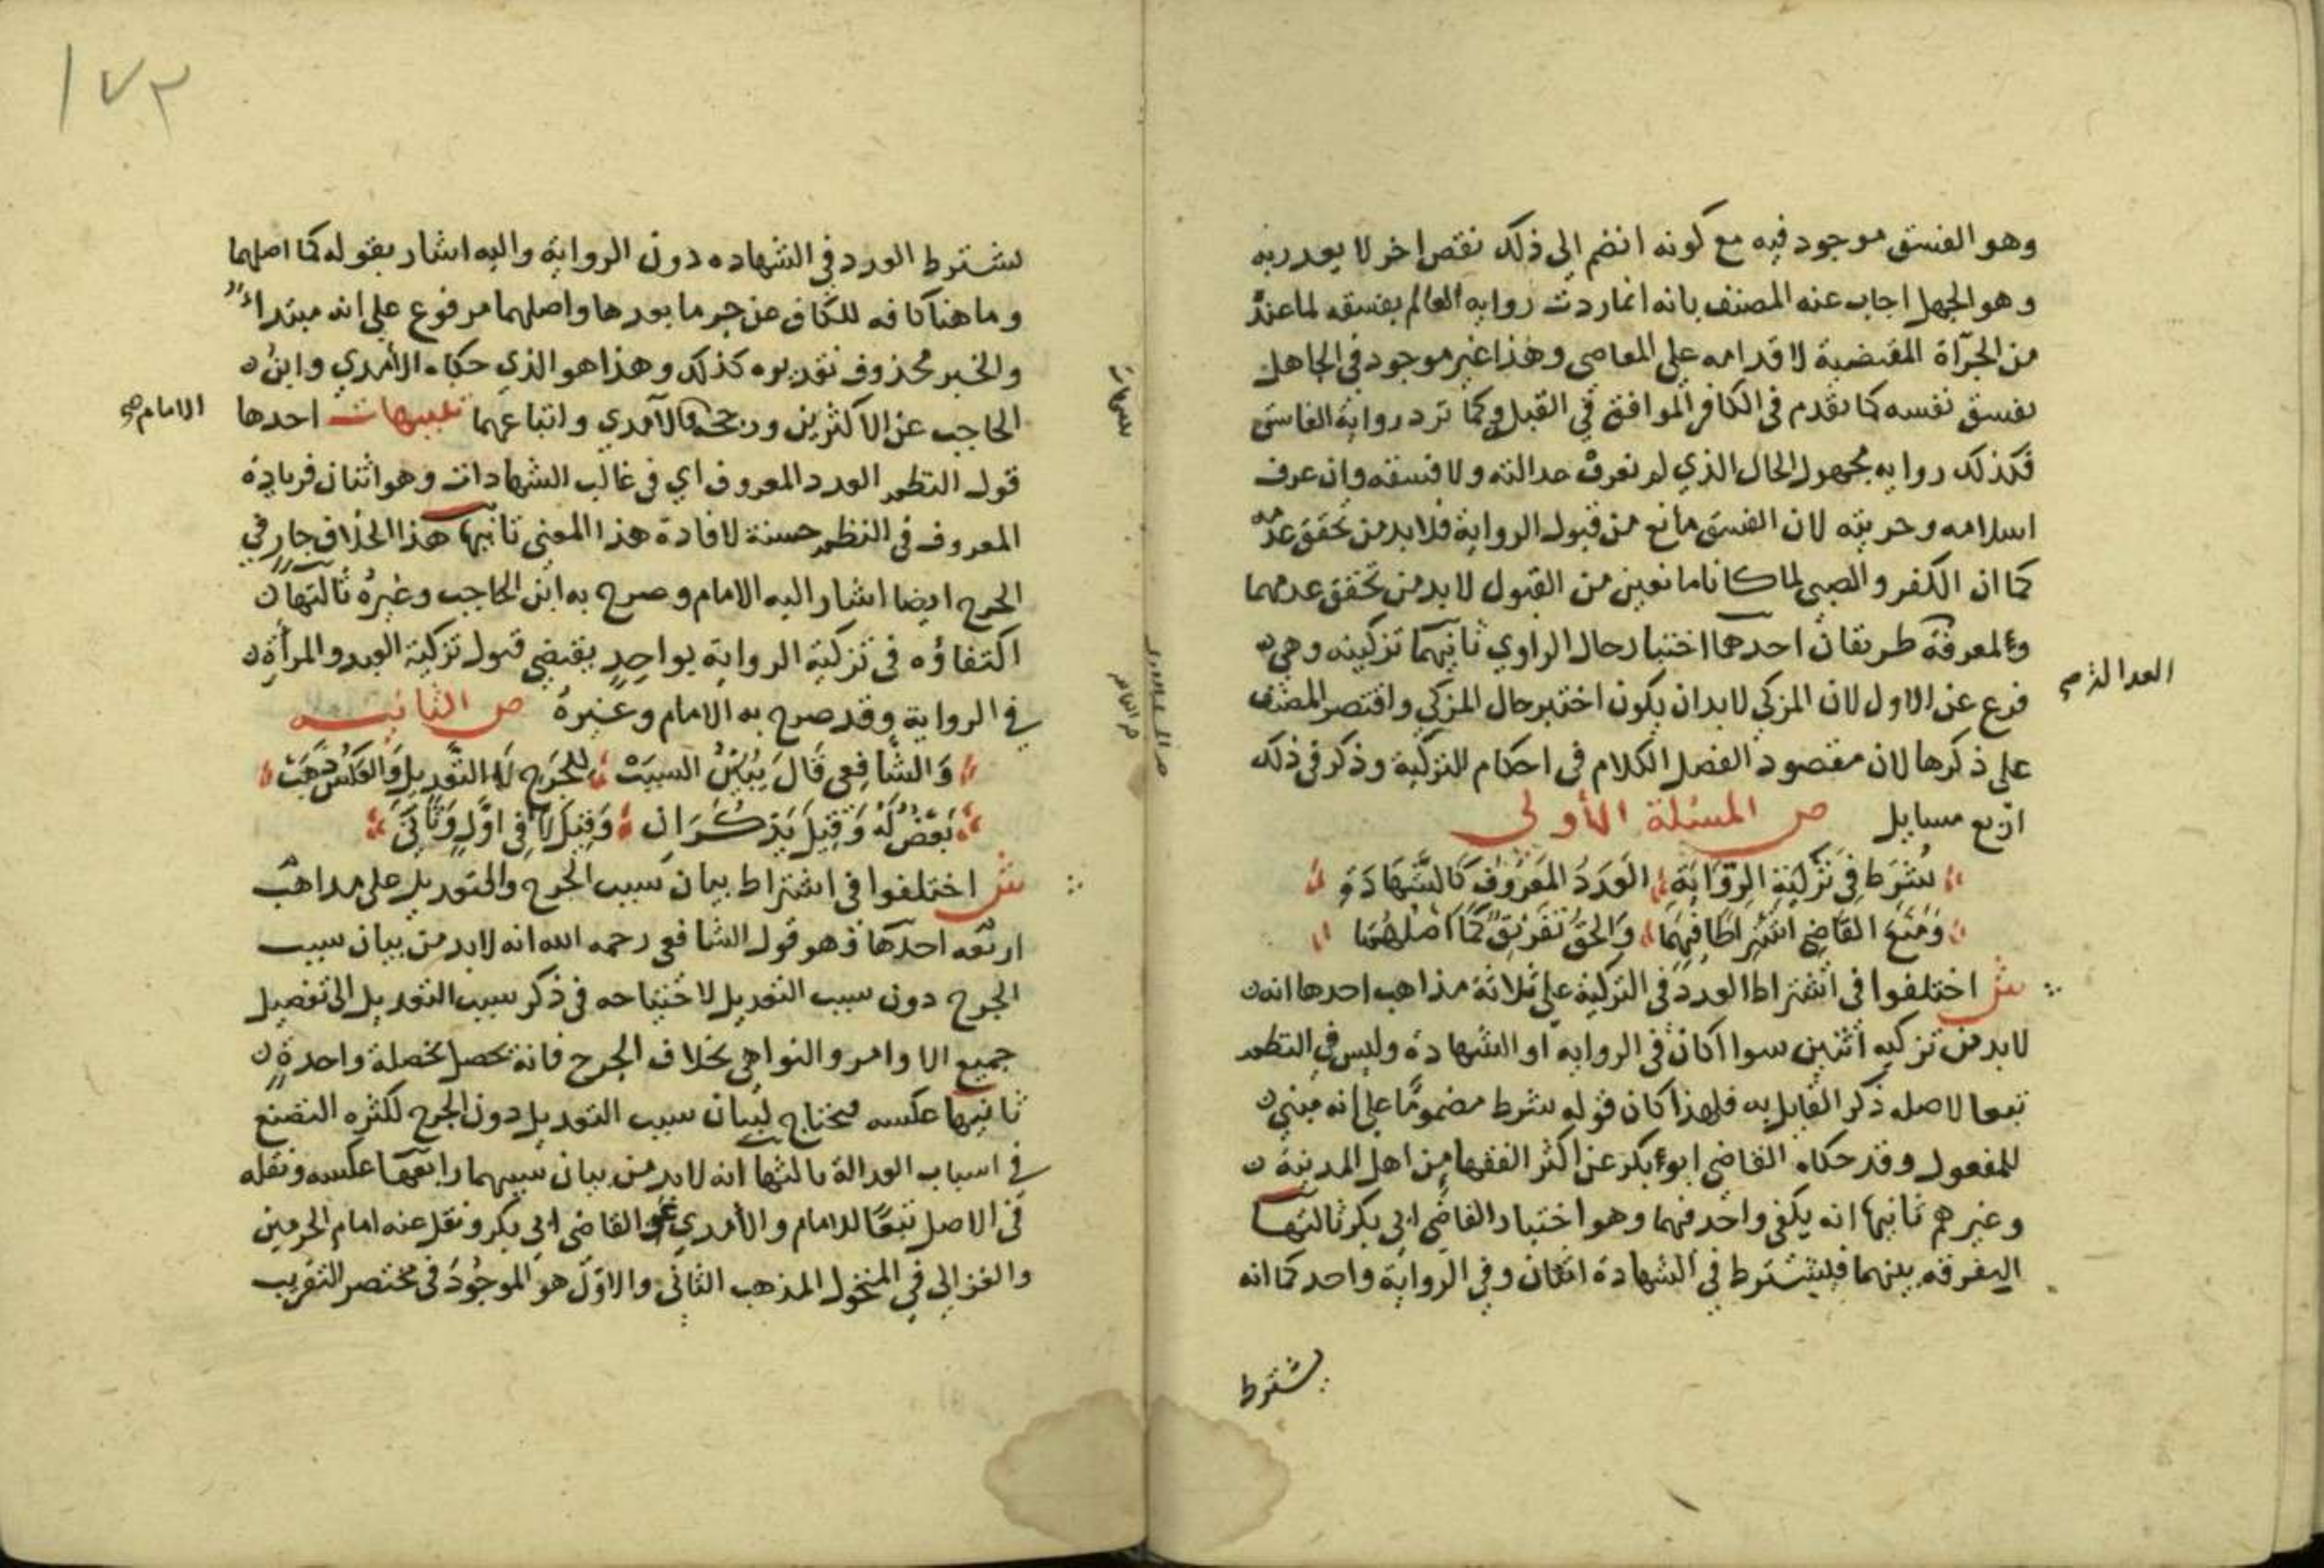 وهو الفسق موجود فيه مع كونه انضم الى ذلك نقص اخر لا يعذر به
وهو الجهل اجاب عنه المصنف بانه انما ردت رواية العالم بفسقه لما عنده
من الجرآة المقتضية لاقدامه على المعاصي وهذا غير موجود في الجاهل
بفسق نفسه كما تقدم في الكافر الموافق في القبلة وكما ترد رواية الفاسق
فكذلك رواية مجهول الحال الذي لم تعرف عدالته ولا فسقه وان عرف
اسلامه وحريته لان الفسق مانع من قبول الرواية فلا بد من تحقق عدمه
كما ان الكفر والصبي لما كانا مانعين من القبول لا بد من تحقق عدمهما
ولمعرفة طريقان احدهما اختبار حال الراوي ثانيهما تزكيته وهي
العدالة صح
فرع عن الاول لان المزكي لا بد ان يكون اختبر حال المزكي واقتصر المصنف
على ذكرها لان مقصود الفصل الكلام في احكام التزكية وذكر في ذلك
اربع مسايل ص المسئلة الأولى
شُرِط في تزكية الرواية العدد المعروف كالشهادة
ومنع القاضي اشتراطا فيهما والحق تفريق كما اصلهما
ش اختلفوا في اشتراط العدد في التزكية على ثلاثة مذاهب احدها انه
لا بد من تزكيه اثنين سواا كان في الروايه او الشهادة وليس في النظم
تبعا لاصله ذكر القايل به فلهذا كان قوله شرط مضمومًا على انه مبني
للمفعول وقد حكاه القاضي ابو بكر عن اكثر الفقها من اهل المدينة
وغيرهم ثانيها انه يكفي واحد فيهما وهو اختيار القاضي ابي بكر ثالثها
التفرقه بينهما فيشترط في الشهادة اثنان وفي الرواية واحد كما انه
يشترط
١٧٣
يشترط العدد في الشهاده دون الرواية واليه اشار بقوله كما اصلهما
وما هنا كافه للكاف عن جر ما بعدها واصلهما مرفوع على انه مبتداء
والخبر محذوف تقديره كذلك وهذا هو الذي حكاه الأمدي وابن
الحاجب عن الاكثرين ورجحه والآمدي واتباعهما تنبيهات احدها
الامام صح
قوله النظم العدد المعروف اي في غالب الشهادات وهو اثنان فزيادة
المعروف في النظم حسنة لافادة هذا المعنى ثانيها هذا الخلاف جار في
الجرح ايضا اشار اليه الامام وصرح به ابن الحاجب وغيره ثالثها
اكتفاؤه في تزكية الرواية بواحد يقتضي قبول تزكية العبد والمرأة
في الرواية وقد صرح به الامام وغيره ص الثانيه
والشافعي قال يُبَيَّنُ السبب للجرح لا التعديل والعكس ذهب
بعض له وقيل يذكران وقيل لا في اول وثاني
ش اختلفوا في اشتراط بيان سبب الجرح والتعديل على مذاهب
اربعه احدها وهو قول الشافعي رحمه الله انه لا بد من بيان سبب
الجرح دون سبب التعديل لاحتياجه في ذكر سبب التعديل الى تفصيل
جميع الاوامر والنواهي بخلاف الجرح فانه يحصل بخصلة واحدة
ثانيها عكسه فيحتاج لبيان سبب التعديل دون الجرح لكثره التصنع
في اسباب العدالة ثالثها انه لا بد من بيان سببهما رابعها عكسه ونقله
في الاصل تبعًا للامام والأمدي عن القاضي ابي بكر ونقل عنه امام الحرمين
والغزالي في المنخول المذهب الثاني والاوّل هو الموجود في مختصر التقريب